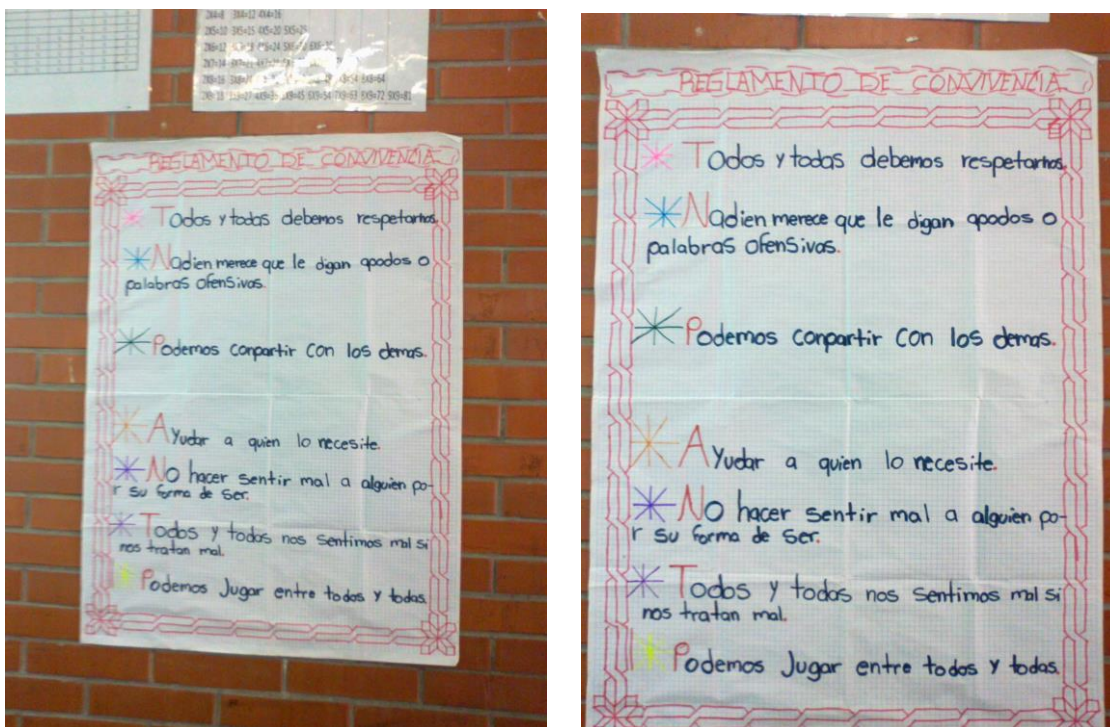 2X4=8 3X4=12 4X4=16
2X5=10 3X5=15 4X5=20 5X5=25
REGLAMENTO DE CONVIVENCIA
Todos y todas debemos respetarnos.
Nadien merece que le digan apodos o
palabras ofensivas.
Podemos conpartir con los demas.
Ayudar a quien lo necesite.
No hacer sentir mal a alguien po-
r su forma de ser.
Todos y todas nos sentimos mal si
nos tratan mal.
Podemos Jugar entre todos y todas.
REGLAMENTO DE CONVIVENCIA
Todos y todas debemos respetarnos.
Nadien merece que le digan apodos o
palabras ofensivas.
Podemos conpartir con los demas.
Ayudar a quien lo necesite.
No hacer sentir mal a alguien po-
r su forma de ser.
Todos y todas nos sentimos mal si
nos tratan mal.
Podemos Jugar entre todos y todas.